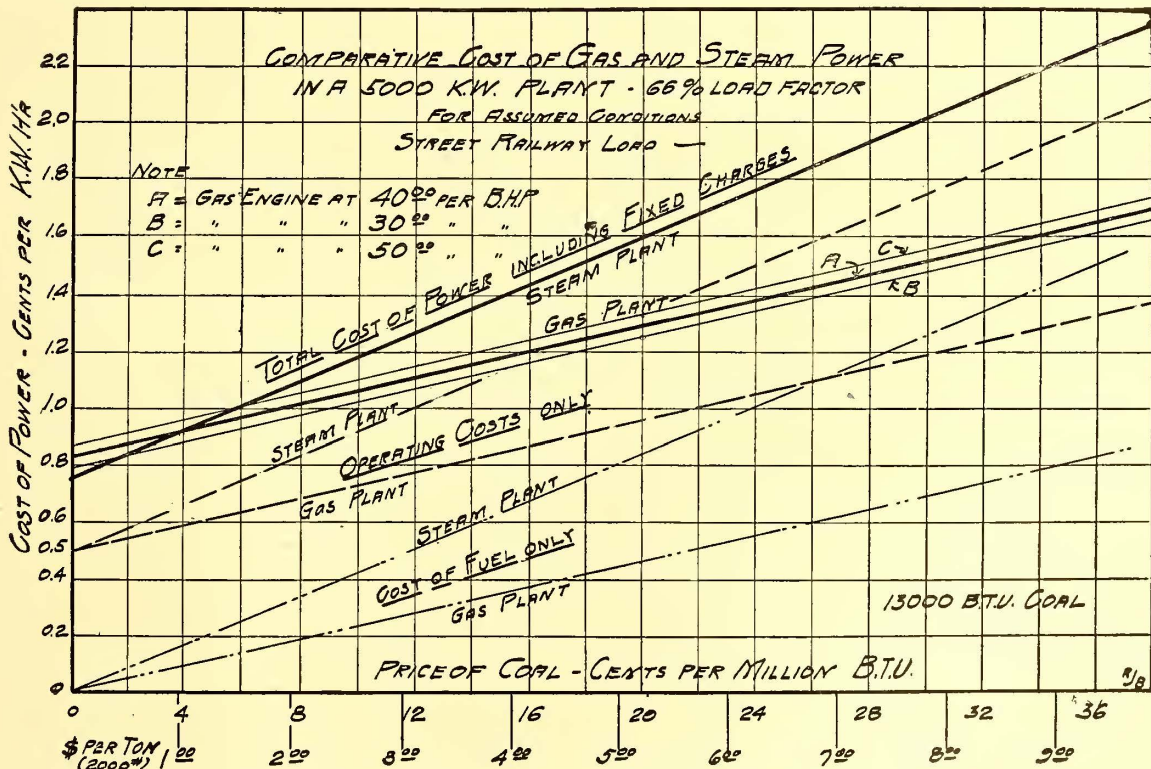 COMPARATIVE COST OF GAS AND STEAM POWER
IN A 5000 K.W. PLANT - 66% LOAD FACTOR
FOR ASSUMED CONDITIONS
STREET RAILWAY LOAD —
NOTE
A = GAS ENGINE AT 4000 PER B.H.P
B = " " " 30 00 " "
C = " " " 50 00 " "
COST OF POWER - CENTS PER K.W. HR
2.2
2.0
1.8
1.6
1.4
1.2
1.0
0.8
0.6
0.5
0.4
0.2
0
TOTAL COST OF POWER INCLUDING FIXED CHARGES
STEAM PLANT
GAS PLANT
A
C
B
STEAM PLANT
OPERATING COSTS ONLY
GAS PLANT
STEAM PLANT
COST OF FUEL ONLY
GAS PLANT
13000 B.T.U. COAL
PRICE OF COAL - CENTS PER MILLION B.T.U.
0 4 8 12 16 20 24 28 32 36
$ PER TON 1 00 2 00 3 00 4 00 5 00 6 00 7 00 8 00 9 00
(2000#)